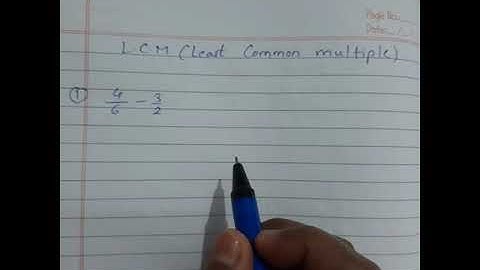 Page No.
Date:
LCM (Least Common multiple)
① 4/6 - 3/2